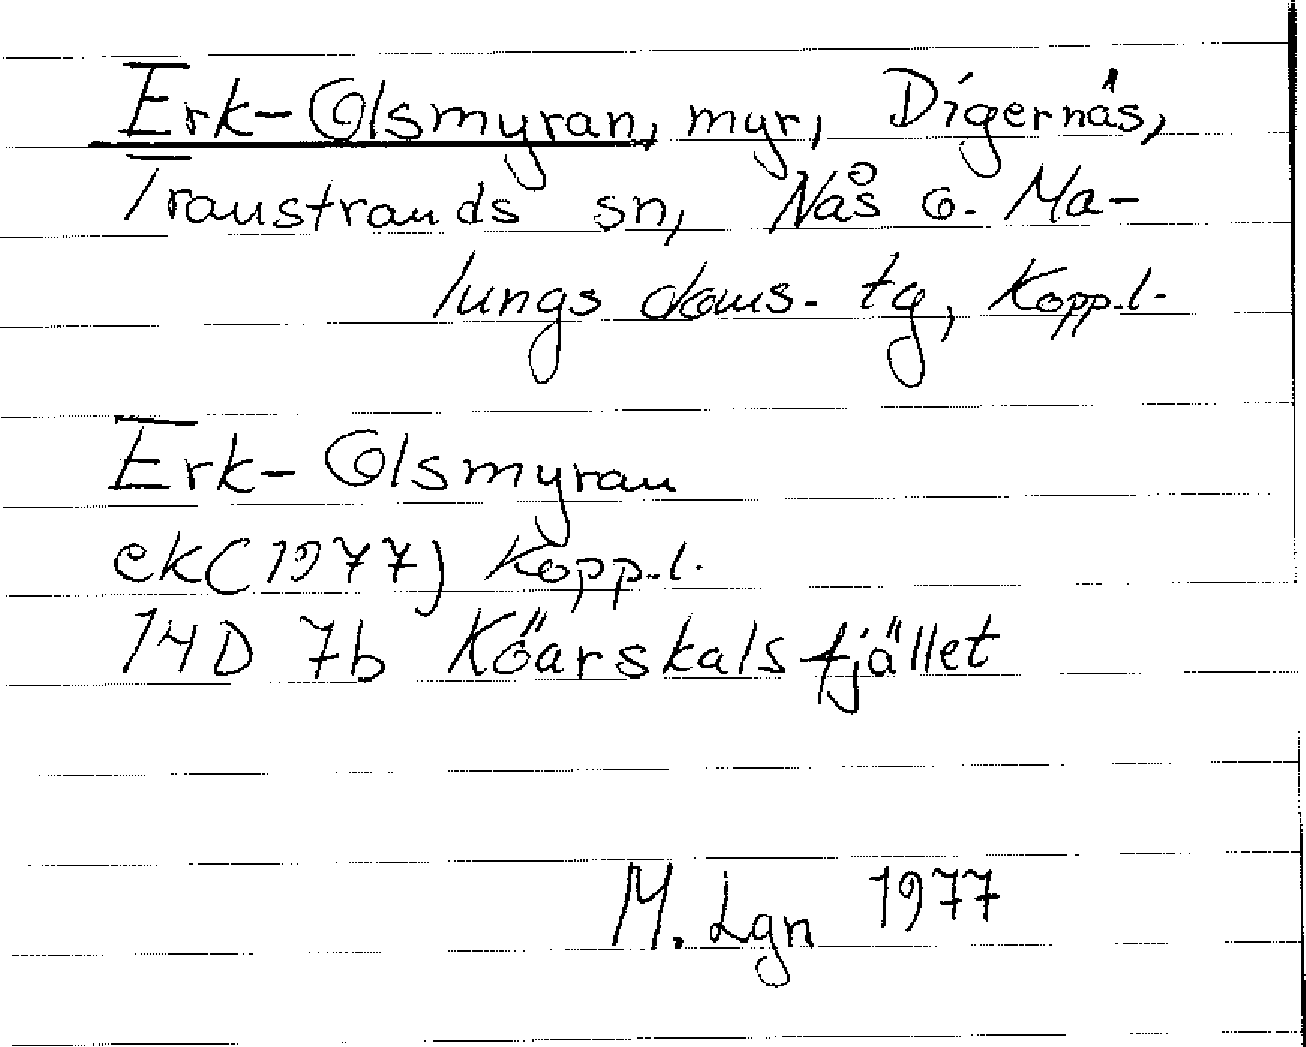 Erk-Olsmyran, myr, Digernäs,
Transtrands sn, Nås o. Ma-
lungs doms. tg, Kopp.l.
Erk-Olsmyran
ek (1977) Kopp.l.
14D 7b Köarskalsfjället
M. Lgn 1977